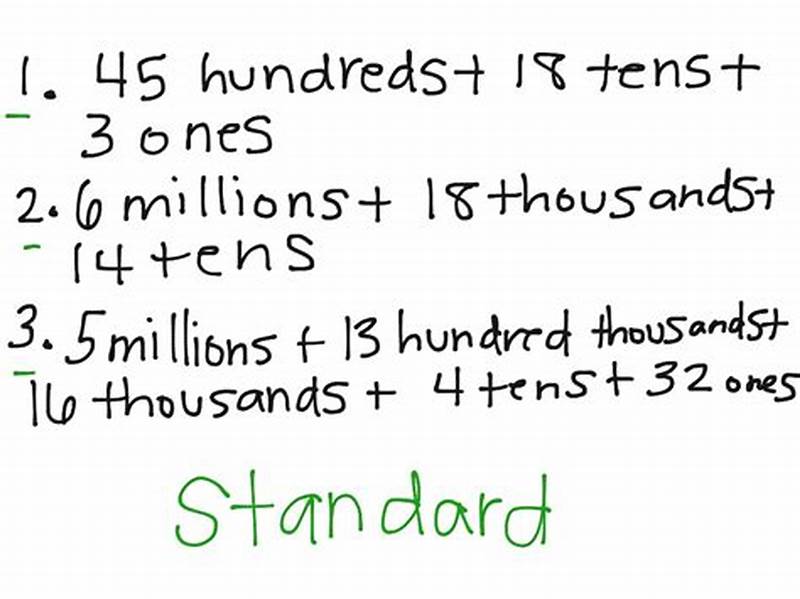 1. 45 hundreds+ 18 tens+
3 ones
2. 6 millions+ 18 thousands+
14 tens
3. 5 millions + 13 hundred thousands+
16 thousands + 4 tens+ 32 ones
Standard